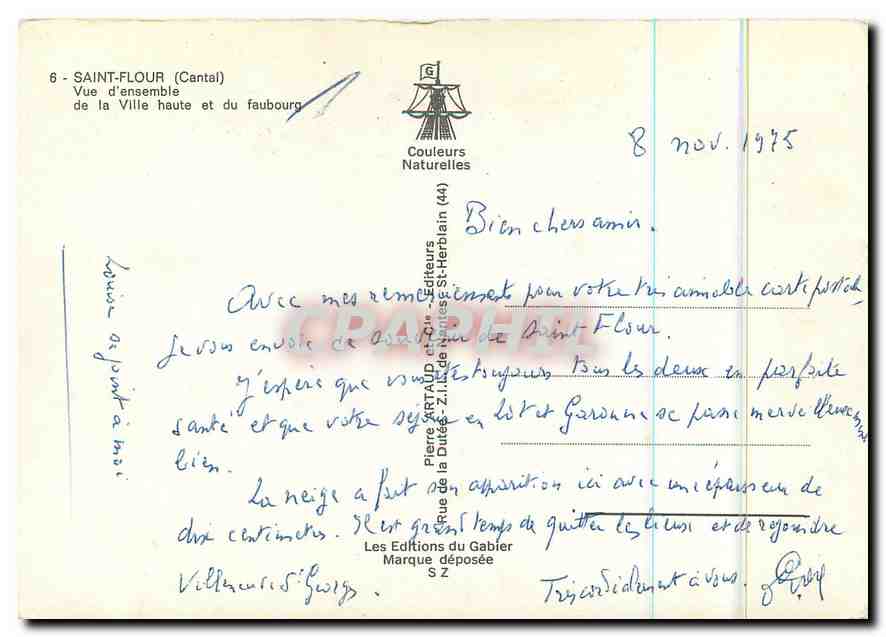 6 - SAINT-FLOUR (Cantal)
Vue d'ensemble
de la Ville haute et du faubourg
G
Couleurs
Naturelles
8 nov. 1975
Bien chers amis.
Avec mes remerciements pour votre très aimable carte postale
je vous envoie ce souvenir de Saint-Flour.
J'espère que vous êtes toujours tous les deux en parfaite
santé et que votre séjour en Lot et Garonne se passe merveilleusement
bien.
La neige a fait son apparition ici avec une épaisseur de
dix centimètres. Il est grand temps de quitter les lieux et de rejoindre
Villeneuve St Georges.
Très cordialement à vous.
Louise se joint à moi
Pierre ARTAUD et Cie - Editeurs
Rue de la Dutée - Z.I.L. de Nantes - St-Herblain (44)
Les Editions du Gabier
Marque déposée
S Z
CPAPHIL